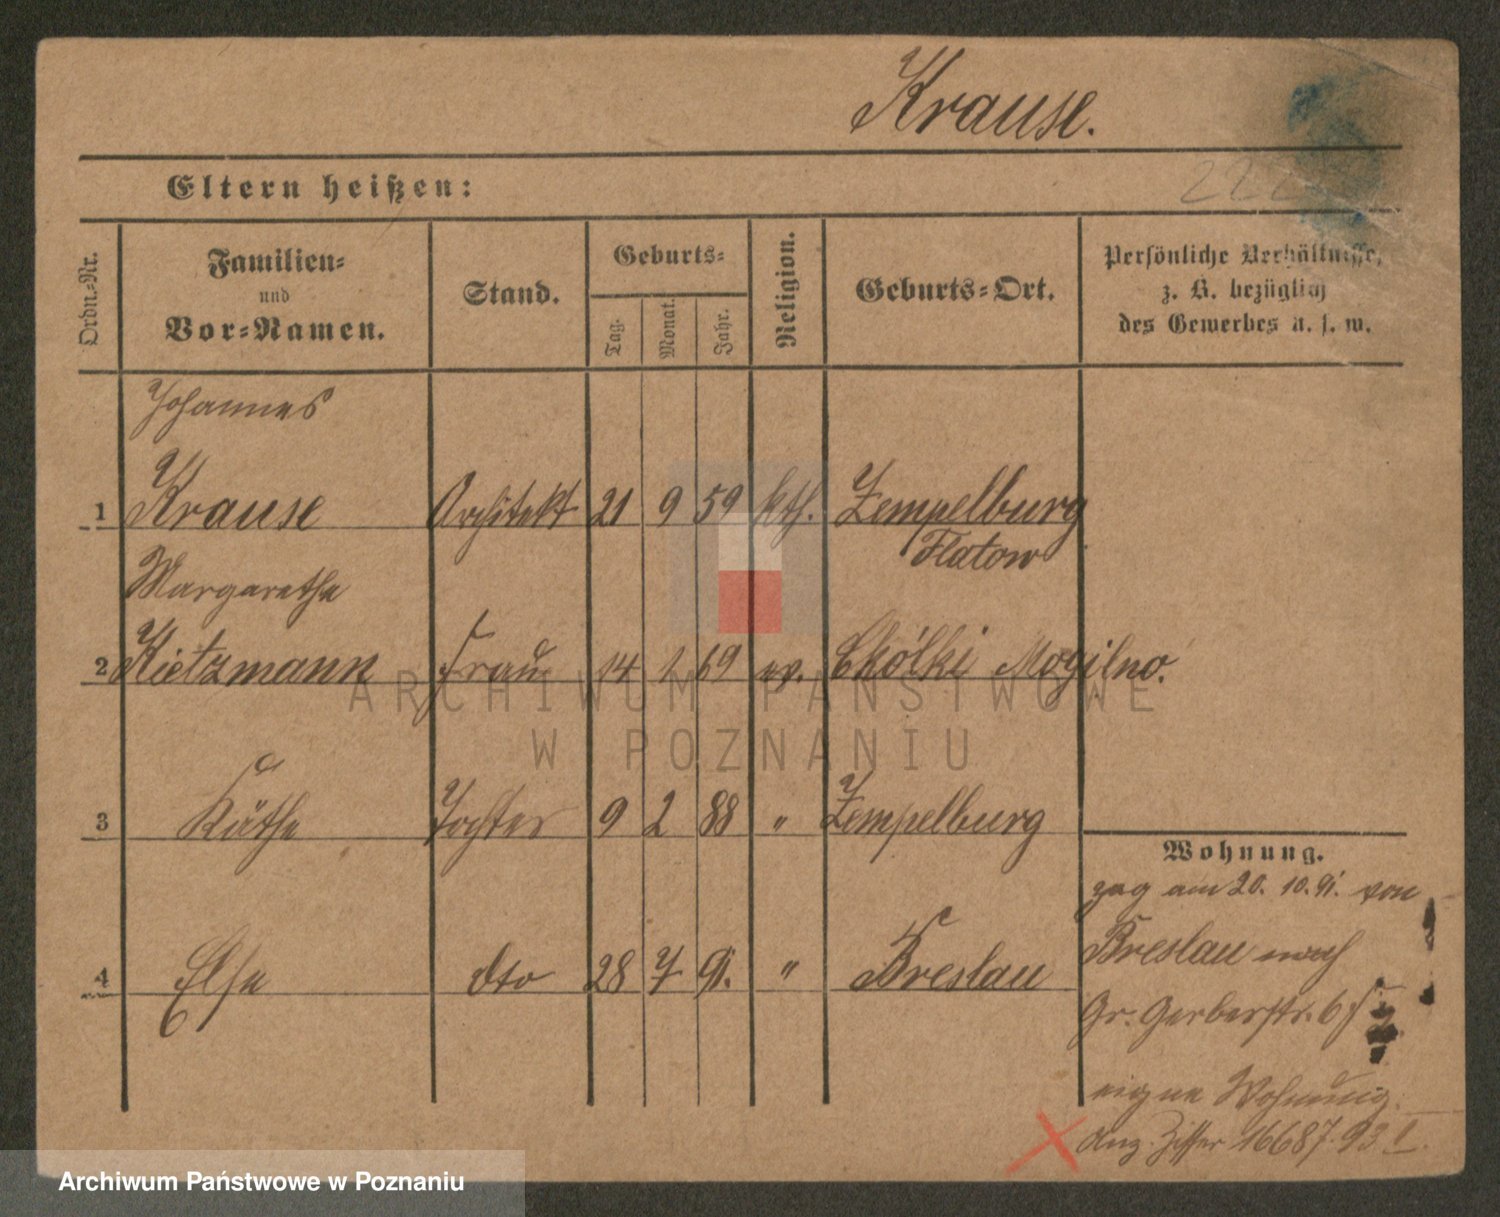 Krause.
222
Eltern heißen:
Ordn.-Nr.
Familien-
und
Vor-Namen.
Stand.
Geburts-
Tag.
Monat.
Jahr.
Religion.
Geburts-Ort.
Persönliche Verhältnisse,
z. B. bezüglich
des Gewerbes u. s. w.
Johannes
1 Krause Architekt 21 9 59 kth. Zempelburg
Flatow
Margarethe
2 Kietzmann Frau 14 1 69 ev. Mogilno.
3 Käthe Tochter 9 2 88 " Zempelburg
4 Else dto 28 7 91. " Breslau
Wohnung.
zog am 20. 10. 91. von
Breslau nach
Gr. Gerberstr. 6
eigne Wohnung.
Anz. Ziffer 16687.93 I.
ARCHIWUM PAŃSTWOWE
W POZNANIU
Archiwum Państwowe w Poznaniu